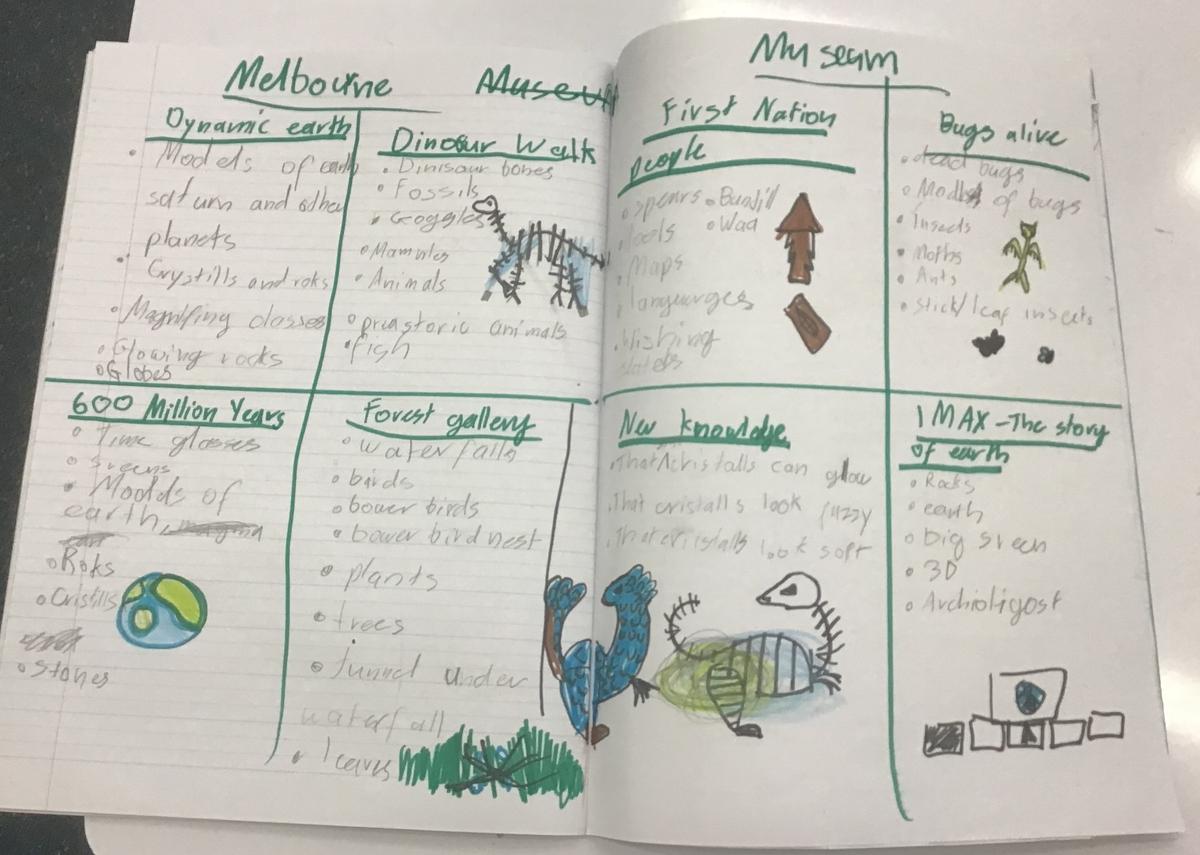 Melbourne
Museum
Museam
Dynamic earth
• Models of earth
saturn and other
planets
• Crystills and roks
• Magnifing classes
• Glowing rocks
• Globes
Dinosur Walk
• Dinisaur bones
• Fossils
• Goggles
• Mammles
• Animals
• prastoric animals
• fish
First Nation
people
• Spears • Bunjil
• tools • Waa
• Maps
• languarges
• Wishing
Bugs alive
• dead bugs
• Models of bugs
• Insects
• Moths
• Ants
• Stick/leaf insects
600 Million Years
• Time glasses
• Sreens
• Modds of
earth, magma
• Roks
• Cristills
• Stones
Forest gallery
• Waterfalls
• birds
• bower birds
• bower bird nest
• plants
• trees
• tunnel under
waterfall
• leaves
New knowledge
• That cristalls can glow
• That cristalls look fuzzy
• That criistalls look soft
IMAX - The story
of earth
• Rocks
• earth
• big sreen
• 3D
• Archioligost